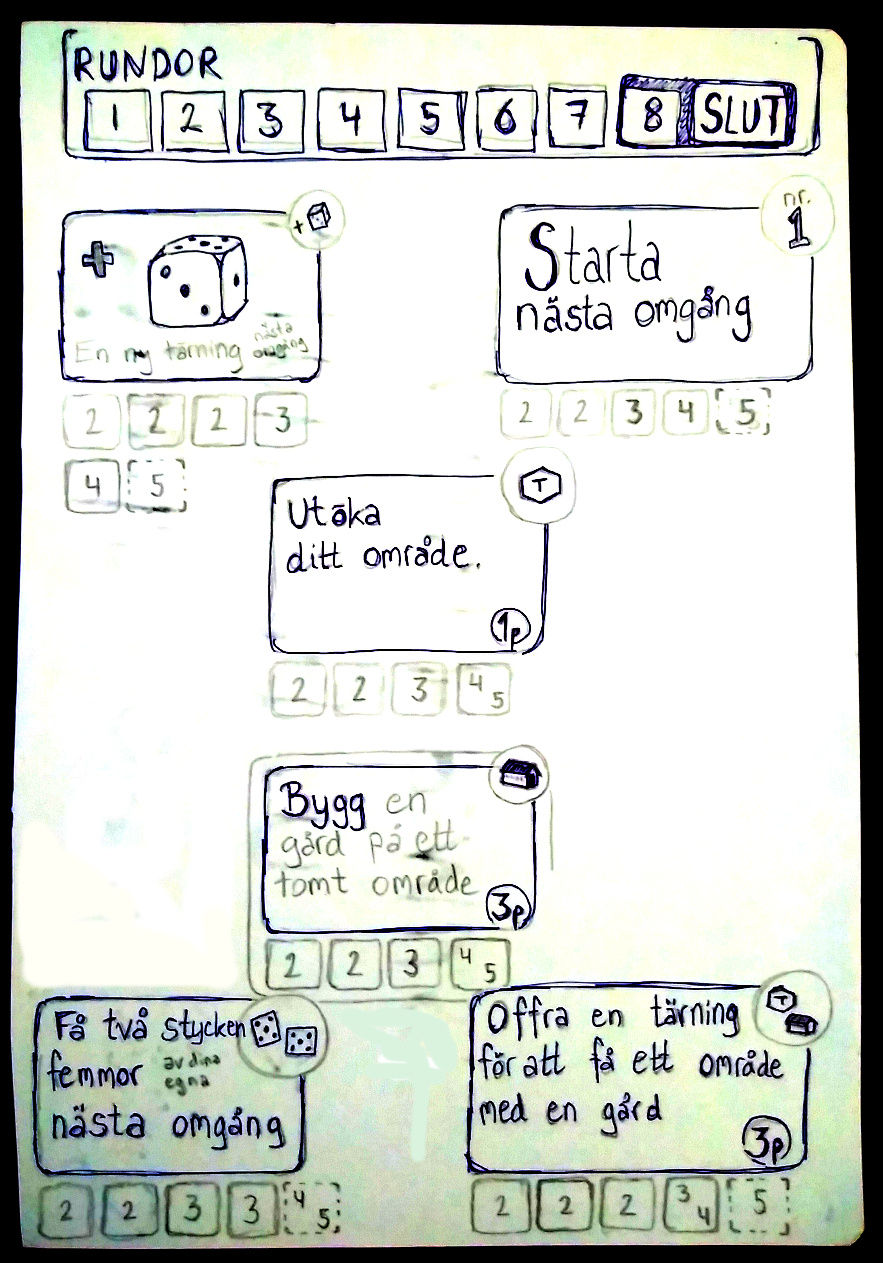 RUNDOR
1 2 3 4 5 6 7 8 SLUT
+
En ny tärning nästa omgång
2 2 2 3
4 5
nr. 1
Starta
nästa omgång
2 2 3 4 5
T
Utöka
ditt område.
1p
2 2 3 4 5
Bygg en
gård på ett
tomt område
3p
2 2 3 4 5
Få två stycken
femmor av dina egna
nästa omgång
2 2 3 3 4 5
T
Offra en tärning
för att få ett område
med en gård
3p
2 2 2 3 4 5